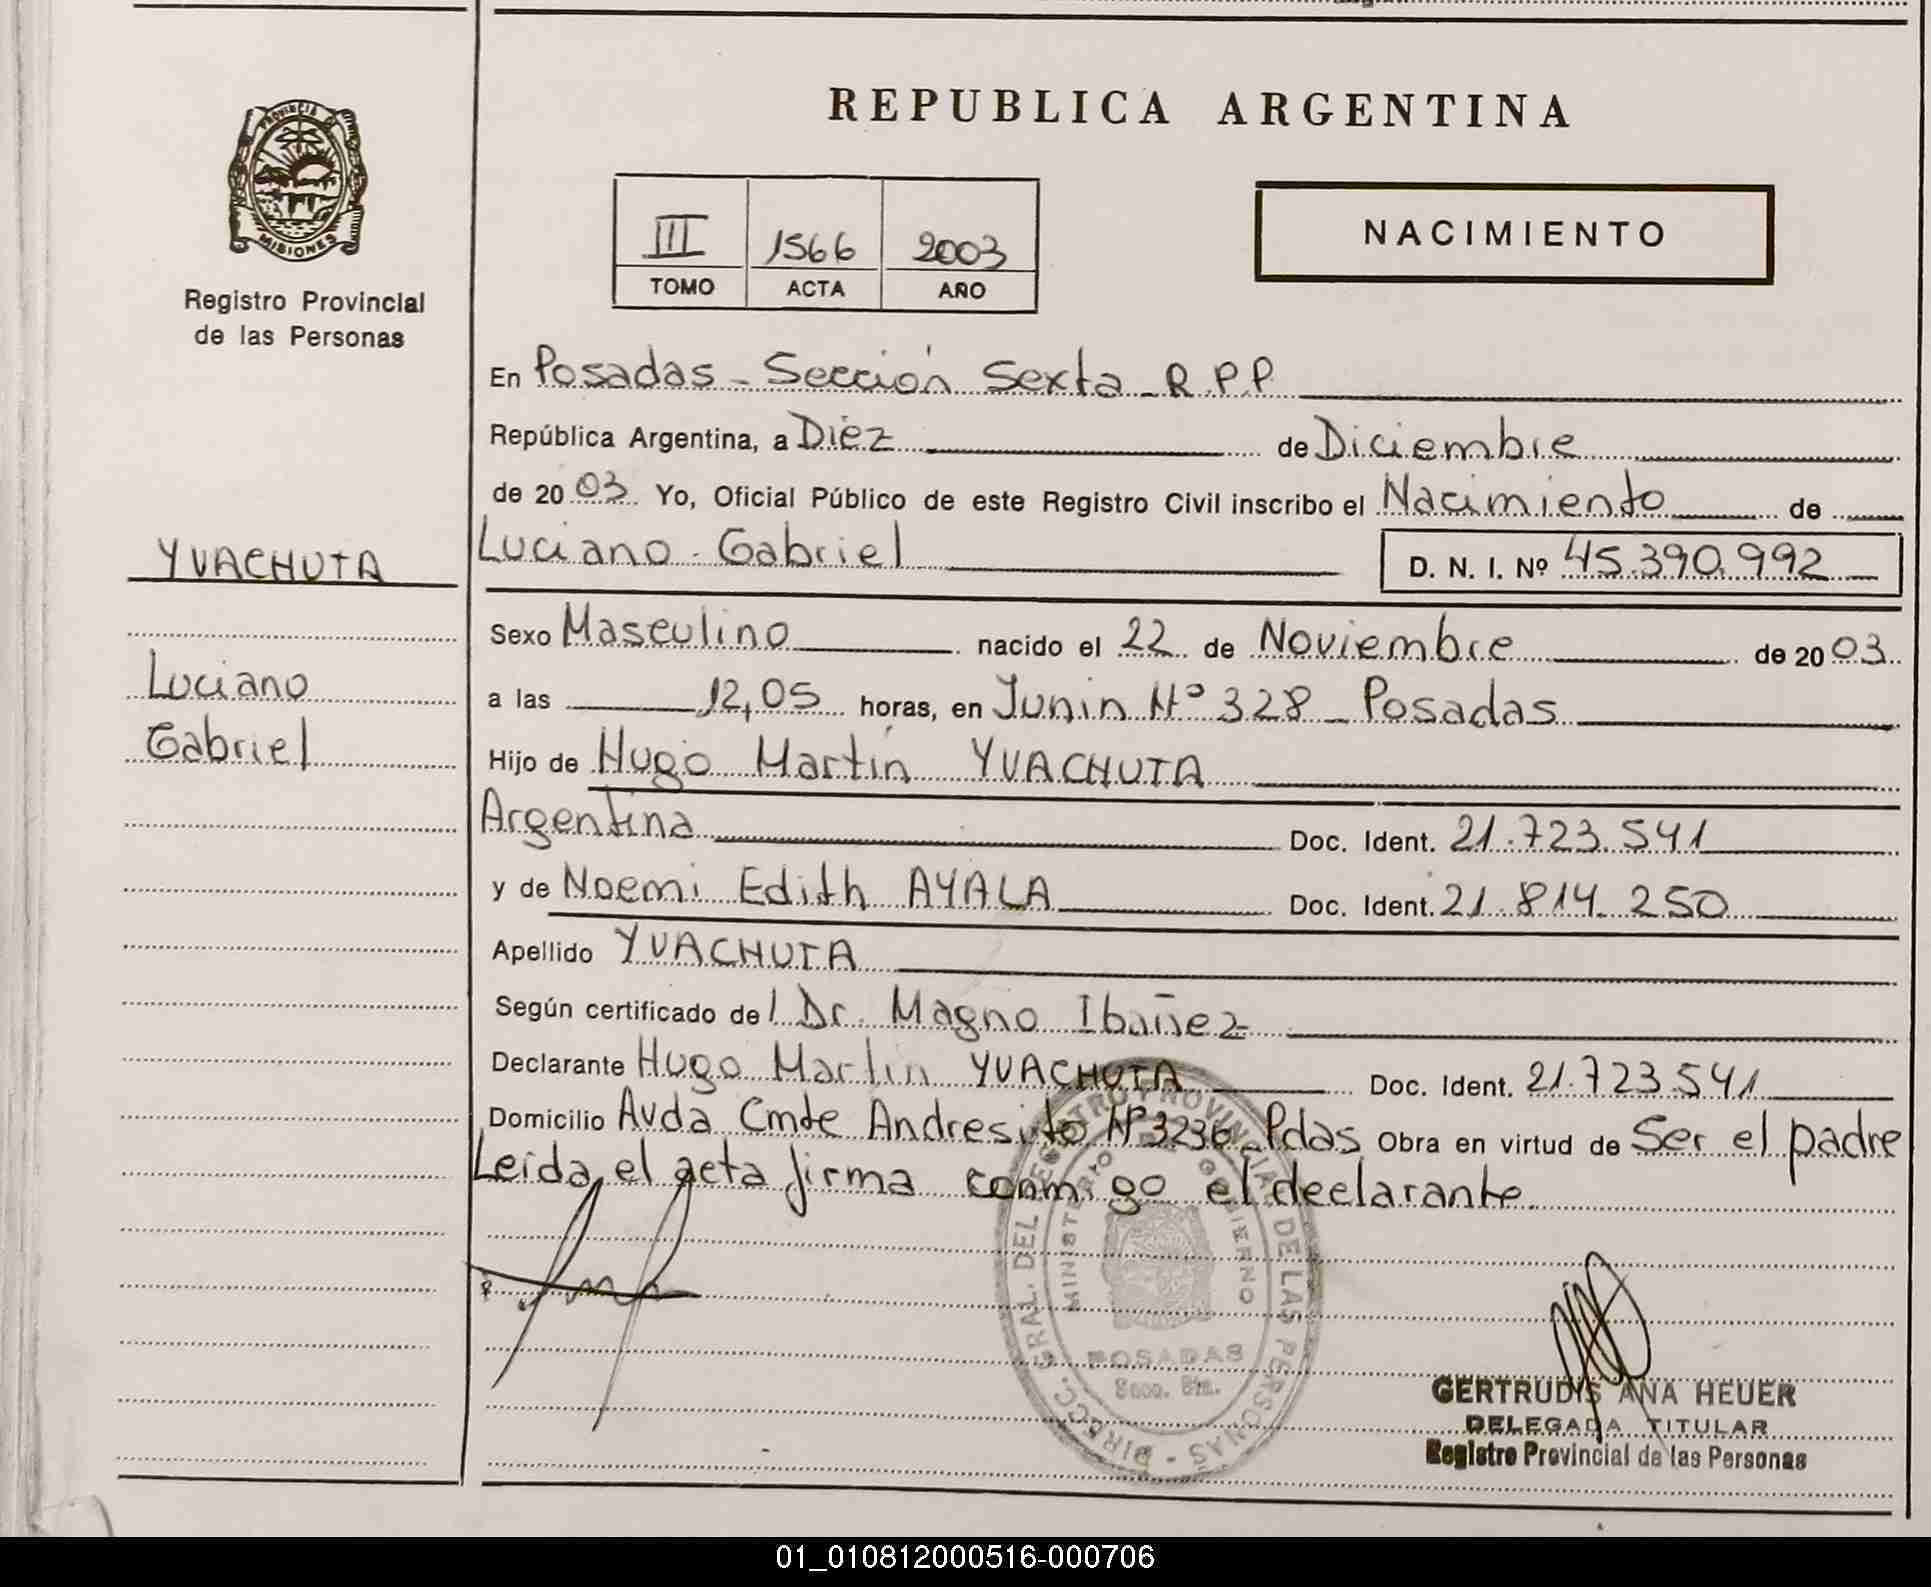 REPUBLICA ARGENTINA
PROVINCIA DE
MISIONES
Registro Provincial
de las Personas
III 1566 2003
TOMO ACTA AÑO
NACIMIENTO
YVACHUTA
Luciano
Gabriel
En Posadas - Sección Sexta - R.P.P.
República Argentina, a Diez de Diciembre
de 2003 Yo, Oficial Público de este Registro Civil inscribo el Nacimiento de
Luciano Gabriel D. N. I. Nº 45.390.992
Sexo Masculino nacido el 22 de Noviembre de 2003
a las 12,05 horas, en Junin Nº 328 - Posadas
Hijo de Hugo Martín YVACHUTA
Argentina Doc. Ident. 21.723.541
y de Noemi Edith AYALA Doc. Ident. 21.814.250
Apellido YVACHUTA
Según certificado del Dr. Magno Ibañez
Declarante Hugo Martin YVACHUTA Doc. Ident. 21.723.541
Domicilio Avda Cmte Andresito Nº 3236 - Pdas Obra en virtud de Ser el padre
Leida el acta firma conmigo el declarante.
DIRECC. GRAL. DEL REGISTRO PROVINCIAL DE LAS PERSONAS -
MINISTERIO DE GOBIERNO
POSADAS
Secc. 6ta.
GERTRUDIS ANA HEUER
DELEGADA TITULAR
Registro Provincial de las Personas
01_010812000516-000706